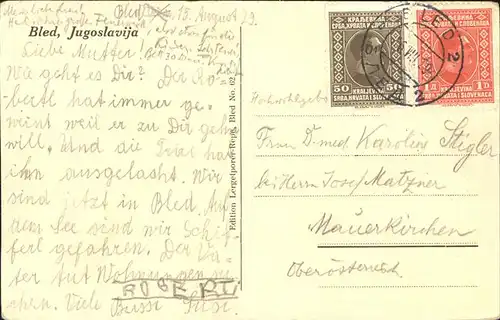 Bled, 15. August 29.
Bled, Jugoslavija
Liebe Mutter!
Wa geht es Dir? Der Ro-
bertl hat immer ge-
weint weil er zu Dir gehn
will. Und die Trixl hat
ihn ausgelacht. Wir
sind jetzt in Bled. Auf
dem See sind wir Schif-
ferl gefahren. Der Va-
ter tut Wohnungen su-
chen. Viele Bussi Susi.
ROBERTL
Edition Lergetporer-Repe, Bled No. 62
КРАЉЕВИНА
СРБА, ХРВАТА И СЛОВЕНАЦА
50 50
KRALJEVINA
SRBA, HRVATA I SLOVENACA
КРАЉЕВИНА
СРБА, ХРВАТА И СЛОВЕНАЦА
1 Д 1 D
KRALJEVINA
SRBA, HRVATA I SLOVENACA
BLED 2
Hochwohlgebo
Frau D-med Karoline Stigler
bei Herrn Josef Matzner
Mauerkirchen
Oberösterreich